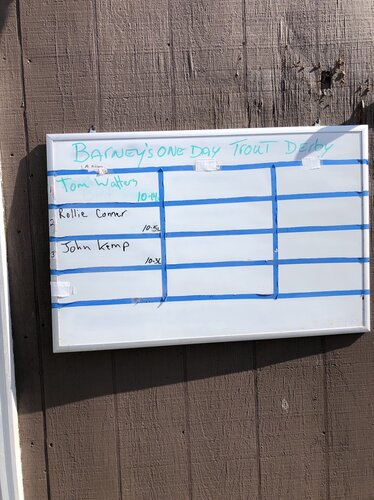 BARNEY'S ONE DAY TROUT DERBY
Tom Watters
2 Rollie Conner
3 John Kemp